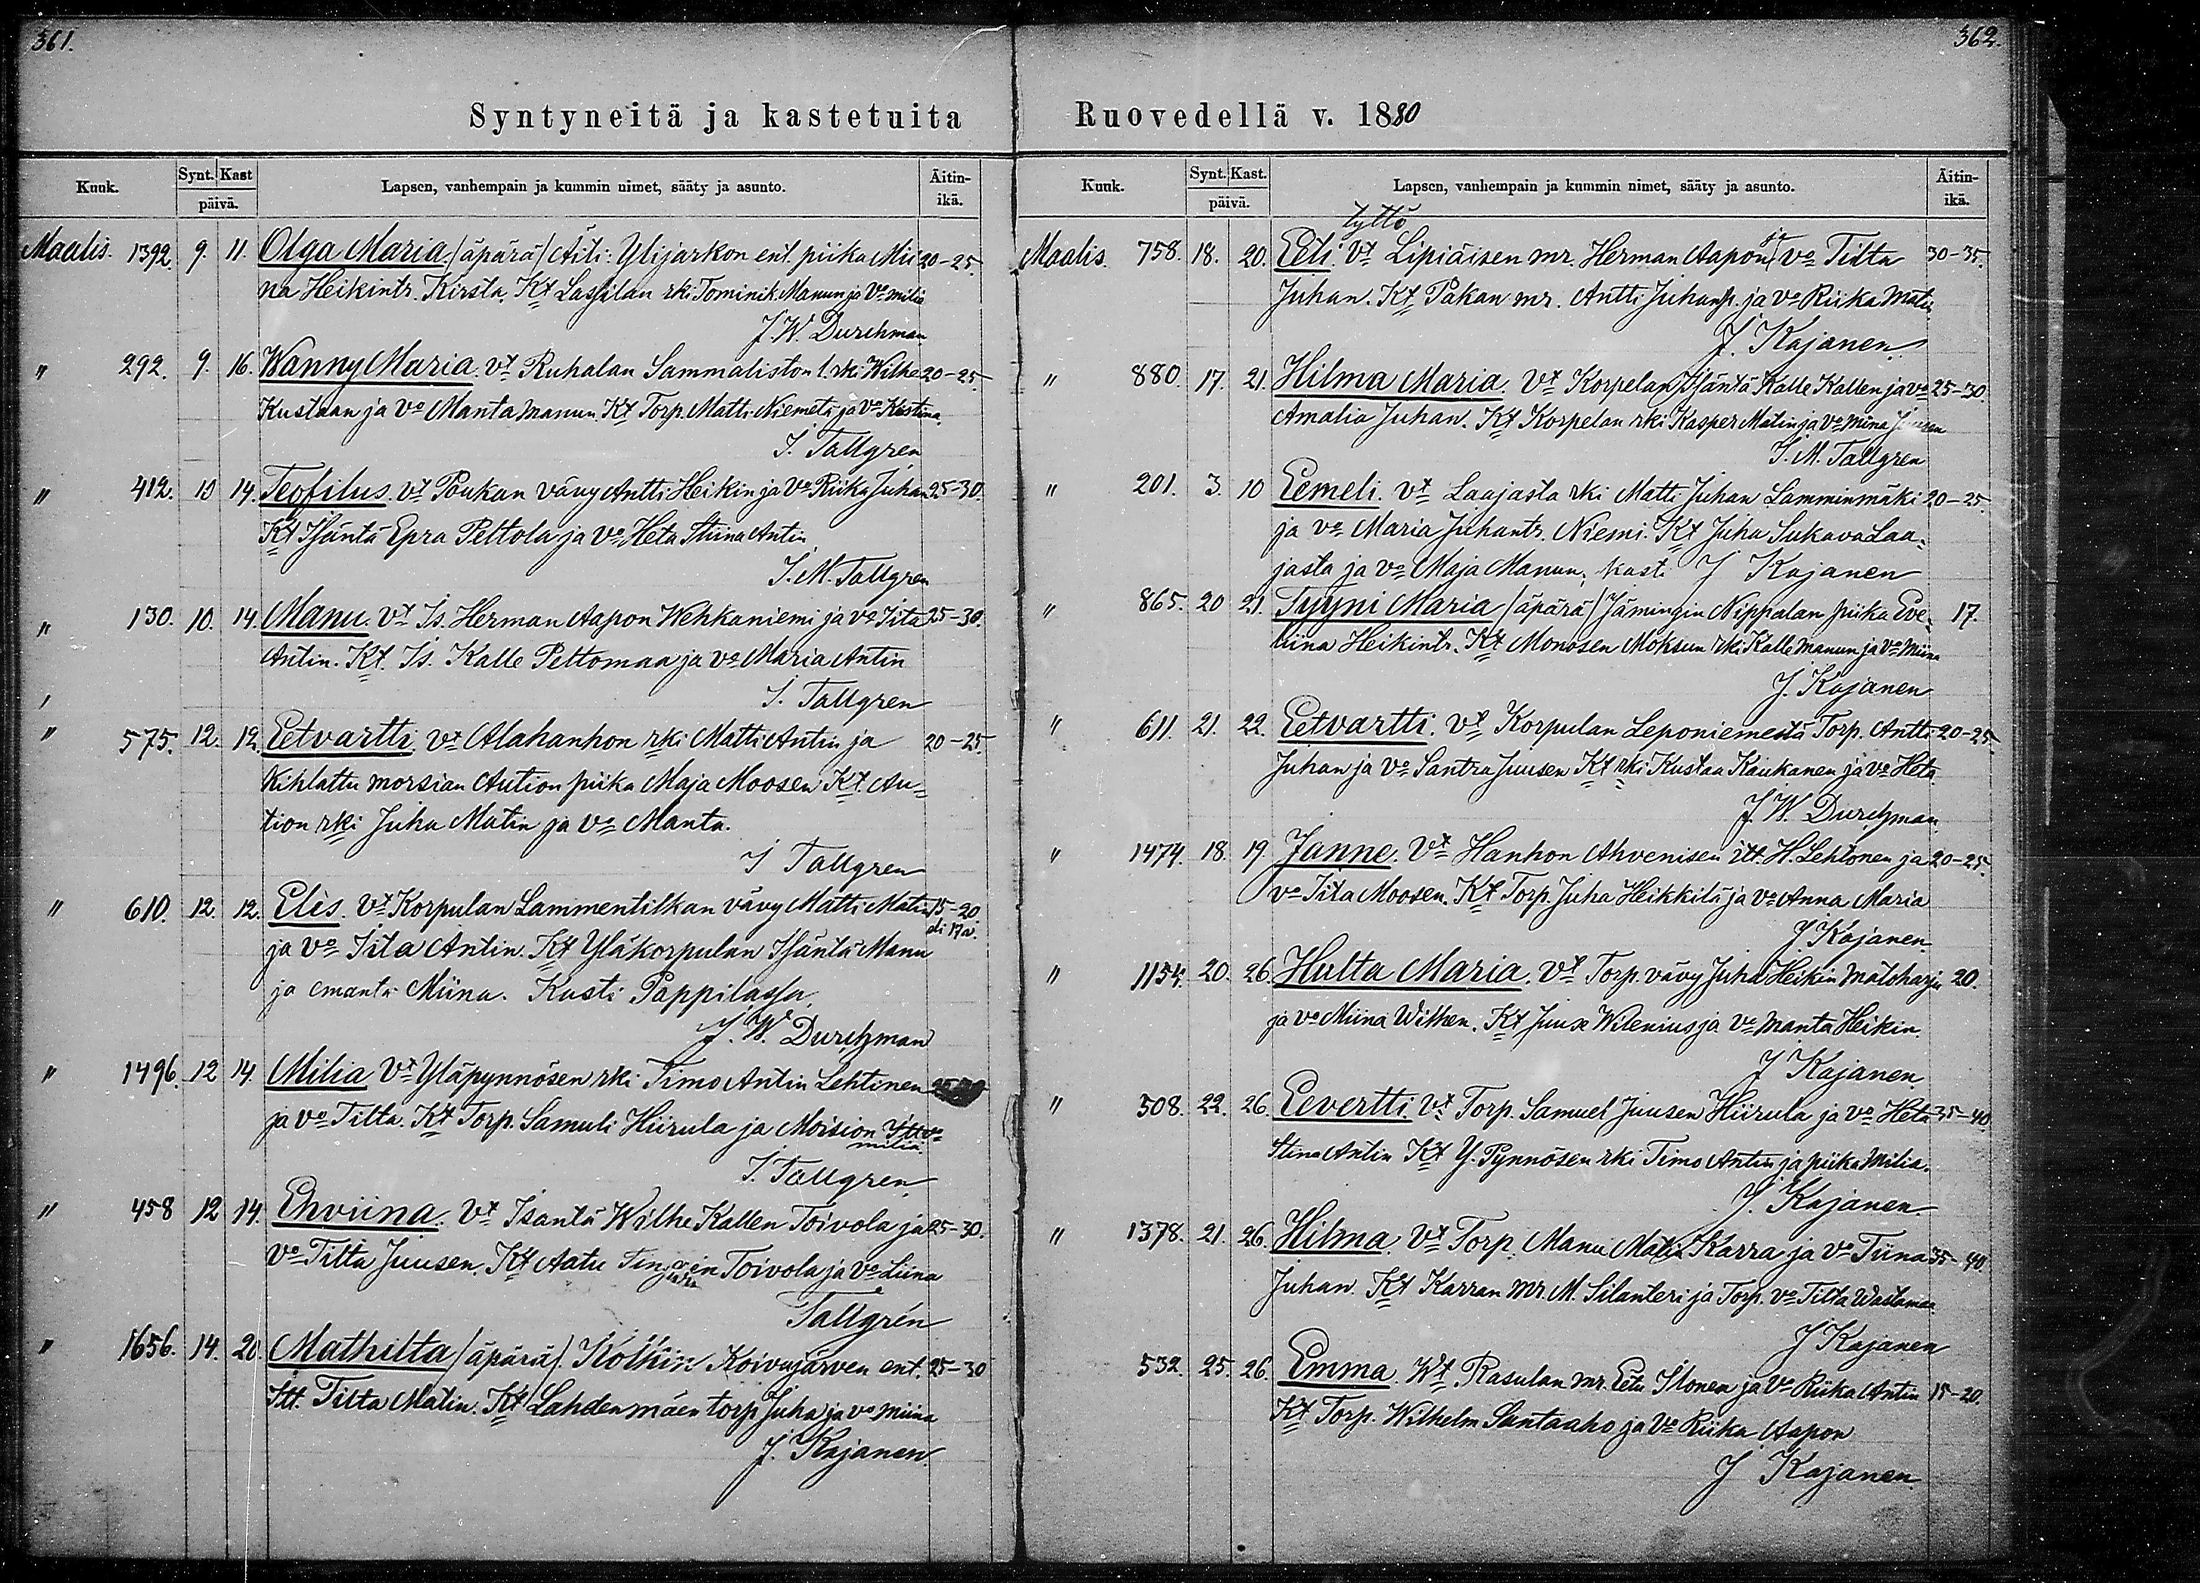 361.
Syntyneitä ja kastetuita
Kuuk.
Synt. Kast
päivä.
Lapsen, vanhempain ja kummin nimet, sääty ja asunto.
Äitin-
ikä.
Maalis. 1392. 9. 11. Olga Maria (äpärä) Äiti: Ylijarkon ent. piika Mii 20-25
na Heikintr. Kirsta, Kt Lassilan rki Tominik Manun ja Vo milia
J. W. Durchman
" 292. 9. 16. Wanny Maria. Vt Ruhalan Sammaliston l. rki Wilhe 20-25
Kustaan ja Vo Manta Manun. Kt Torp. Matti Niemeti ja Vo Kristina
I. Tallgren
" 412. 10 14. Teofilus. Vt Poukan vävy Antti Heikin ja Vo Riika Juhan 25-30.
Kt Isäntä Epra Peltola ja Vo Heta Stiina Antin
I. M. Tallgren
" 130. 10. 14. Manu. Vt Is. Herman Aapon Wehkaniemi ja Vo Iita 25-30.
Antin. Kt. Is. Kalle Peltomaa ja Vo Maria Antin
I. Tallgren
" 575. 12. 12. Eetvartti Vt Alahanhon rki Matti Antin ja 20-25.
Kihlattu morsian Aution piika Maja Moosen Kt Au=
tion rki Juha Matin ja Vo Manta.
I Tallgren
" 610. 12. 12. Elis. Vt Korpulan Lammentilkan vävy Matti Matin 15-20.
ja Vo Iita Antin. Kt Yläkorpulan Isäntä Manu
ja emäntä Miina. Kasti Pappilassa.
J. W. Durchman
" 1496. 12 14. Milia Vt Yläpynnösen rki Timo Antin Lehtinen
ja Vo Tilta. Kt Torp. Samuli Hiirula ja Moision Itt Vo
milia.
I. Tallgren.
" 458 12 14. Ehviina. Vt Isäntä Wilhe Kallen Toivola ja 25-30.
Vo Tilta Juusen. Kt Aatu Toivola ja Vo Liina
Tallgrén
" 1656. 14. 20. Mathilta (äpärä). Kolkin Koivujärven ent. 25-30
Itt. Tilta Matin. Kt Lahdenmäen torp Juha ja vo Miina
J. Kajanen.
362.
Ruovedellä v. 1880
Kuuk.
Synt. Kast.
päivä.
Lapsen, vanhempain ja kummin nimet, sääty ja asunto.
Äitin-
ikä.
tyttö
Maalis. 758. 18. 20. Eeli. Vt Lipiäisen mr. Herman Aapon ja Vo Tilta 30-35.
Juhan. Kt Pakan mr. Antti Juhanp. ja Vo Riika Matin
J. Kajanen
" 880. 17. 21. Hilma Maria. Vt Korpelan Isäntä Kalle Kallen ja Vo 25-30.
Amalia Juhan. Kt Korpelan rki Kasper Matin ja Vo Miina Juusen
I. M. Tallgren
" 201. 3. 10 Eemeli. Vt Laajasta rki Matti Juhan Lamminmäki 20-25.
ja Vo Maria Juhantr. Niemi. Kt Juha Sukava Laa=
jasta ja Vo Maja Manun, kasti J Kajanen
" 865. 20 21. Tyyni Maria (äpärä) Jämingin Nippalan piika Eve= 17.
liina Heikintr. Kt Monosen Moksun rki Kalle Manun ja Vo Miina
J. Kajanen
" 611. 21. 22. Eetvartti. Vt Korpulan Leponiemestä Torp. Antti 20-25.
Juhan ja Vo Santra Juusen Kt rki Kustaa Kaukanen ja Vo Heta
J. W. Durchman.
" 1474. 18. 19. Janne. Vt Hanhon Ahvenisen itt. H. Lehtonen ja 20-25.
Vo Iita Moosen. Kt Torp. Juha Heikkilä ja Vo Anna Maria
J Kajanen.
" 1154. 20. 26. Hulta Maria. Vt Torp. vävy Juha Heikin Mätöharju 20.
ja Vo Miina Wilhen. Kt Juuse Wilenius ja Vo Manta Heikin.
J Kajanen
" 508. 22. 26. Eevertti. Vt Torp. Samuel Juusen Hiirula ja Vo Heta 35-40.
Stina Antin Kt Y. Pynnösen rki Timo Antin ja piika Milia.
J. Kajanen.
" 1378. 21. 26. Hilma. Vt Torp. Manu Matin Karra ja Vo Tiina 35-40
Juhan. Kt Karran mr. M. Silanteri ja Torp. Vo Tilta Wastamaa
J Kajanen
532. 25. 26. Emma. Wt Rasulan mr. Eetu Ilonen ja Vo Riika Antin 15-20.
Kt Torp. Wilhelm Santaaho ja Vo Riika Aapon
J Kajanen.